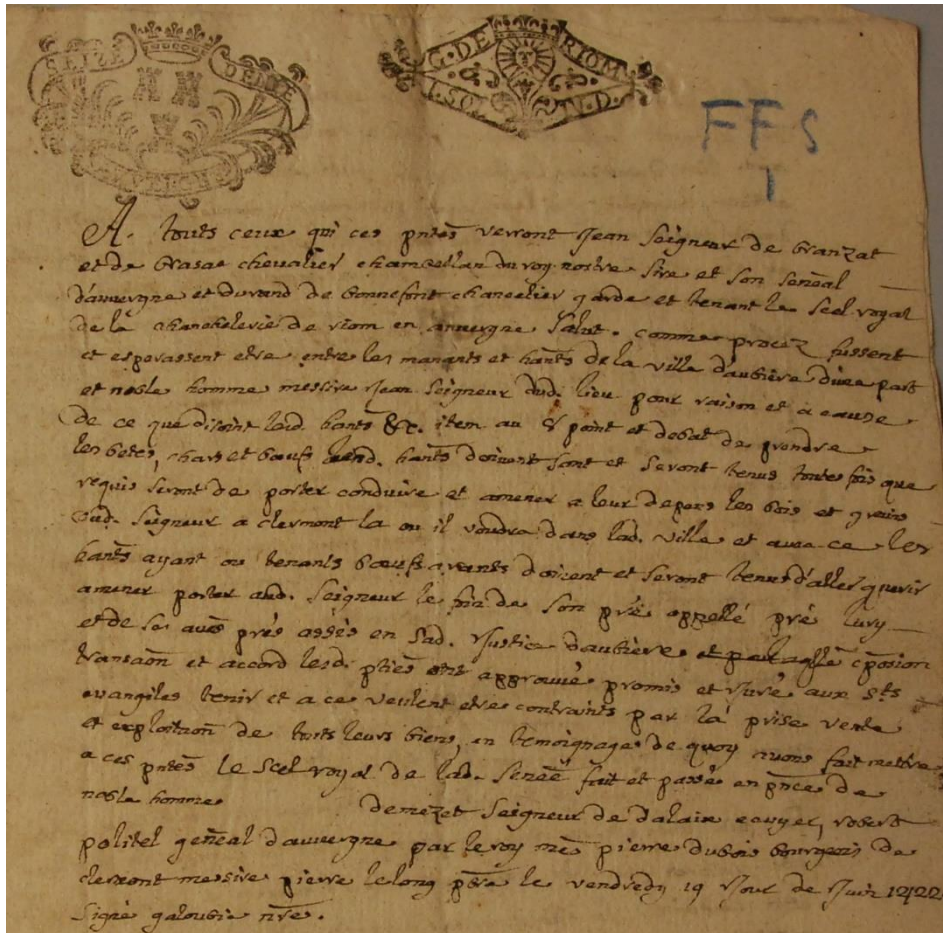 SEIZE DENIE
G. DE RIOM
FFS
A. touts ceux qui ces pntes verront Jean Seigneur de Granzat
et de chevalier chamcellan du roy nostre sire et son senéal
d'auvergne et durand de bonnefont chancelier garde et tenant le scel royal
de la chanchelerie de riom en auvergne Salut. comme procez fussent
et esperassent etre entre les manants et hants de la ville d'aubiere d'une part
et noble homme messire Jean Seigneur dud. lieu pour raison et a cause
de ce que disoint lesd. hants &c. item au point et debat de prendre
les betes, chars et bœufs hants doivent sont et seront tenus toutes fois que
requis seront de porter conduire et amener a leur depens les bois et grains
dud. Seigneur a clermont la ou il voudra dans lad. ville et avec ce les
hants ayant ou tenants bœufs arants doivent et seront tenus d'aller querir
amener porter aud. Seigneur le foin de son pré appellé pré
et de ses prés assés en sad. Justice d'aubière
transaon et accord lesd. pties ont approuvé promis et Juré aux sts
evangiles tenir et a ce veulent etre contraints par la prise vente
et exploitaon de touts leurs biens, en temoignage de quoy avons fait mettre
a ces pntes le scel royal de lad. Seneé fait et passé en pnce de
noble homme demezet Seigneur de dalaix ecuyer, robert
politel genéal d'auvergne par le roy pierre dubois bourgeois de
clermont messire pierre lelong ptre le vendredy 19 Jour de Juin 1422
Signé galoubie nre.